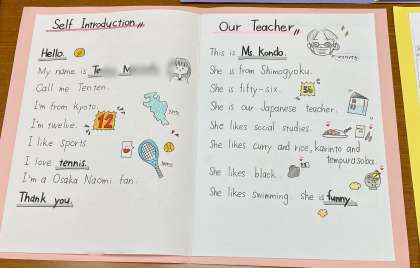 Self Introduction
Hello.
My name is
Call me Tenten.
I'm from Kyoto.
I'm twelve.
12
I like sports.
I love tennis.
I'm a Osaka Naomi fan.
Thank you.
Our Teacher
This is Ms. Kondo.
She is from Shimogyoku.
She is fifty-six.
56
She is our Japanese teacher.
She likes social studies.
She likes curry and rice, karinto and
tempura soba
She likes black.
She likes swimming. she is funny.